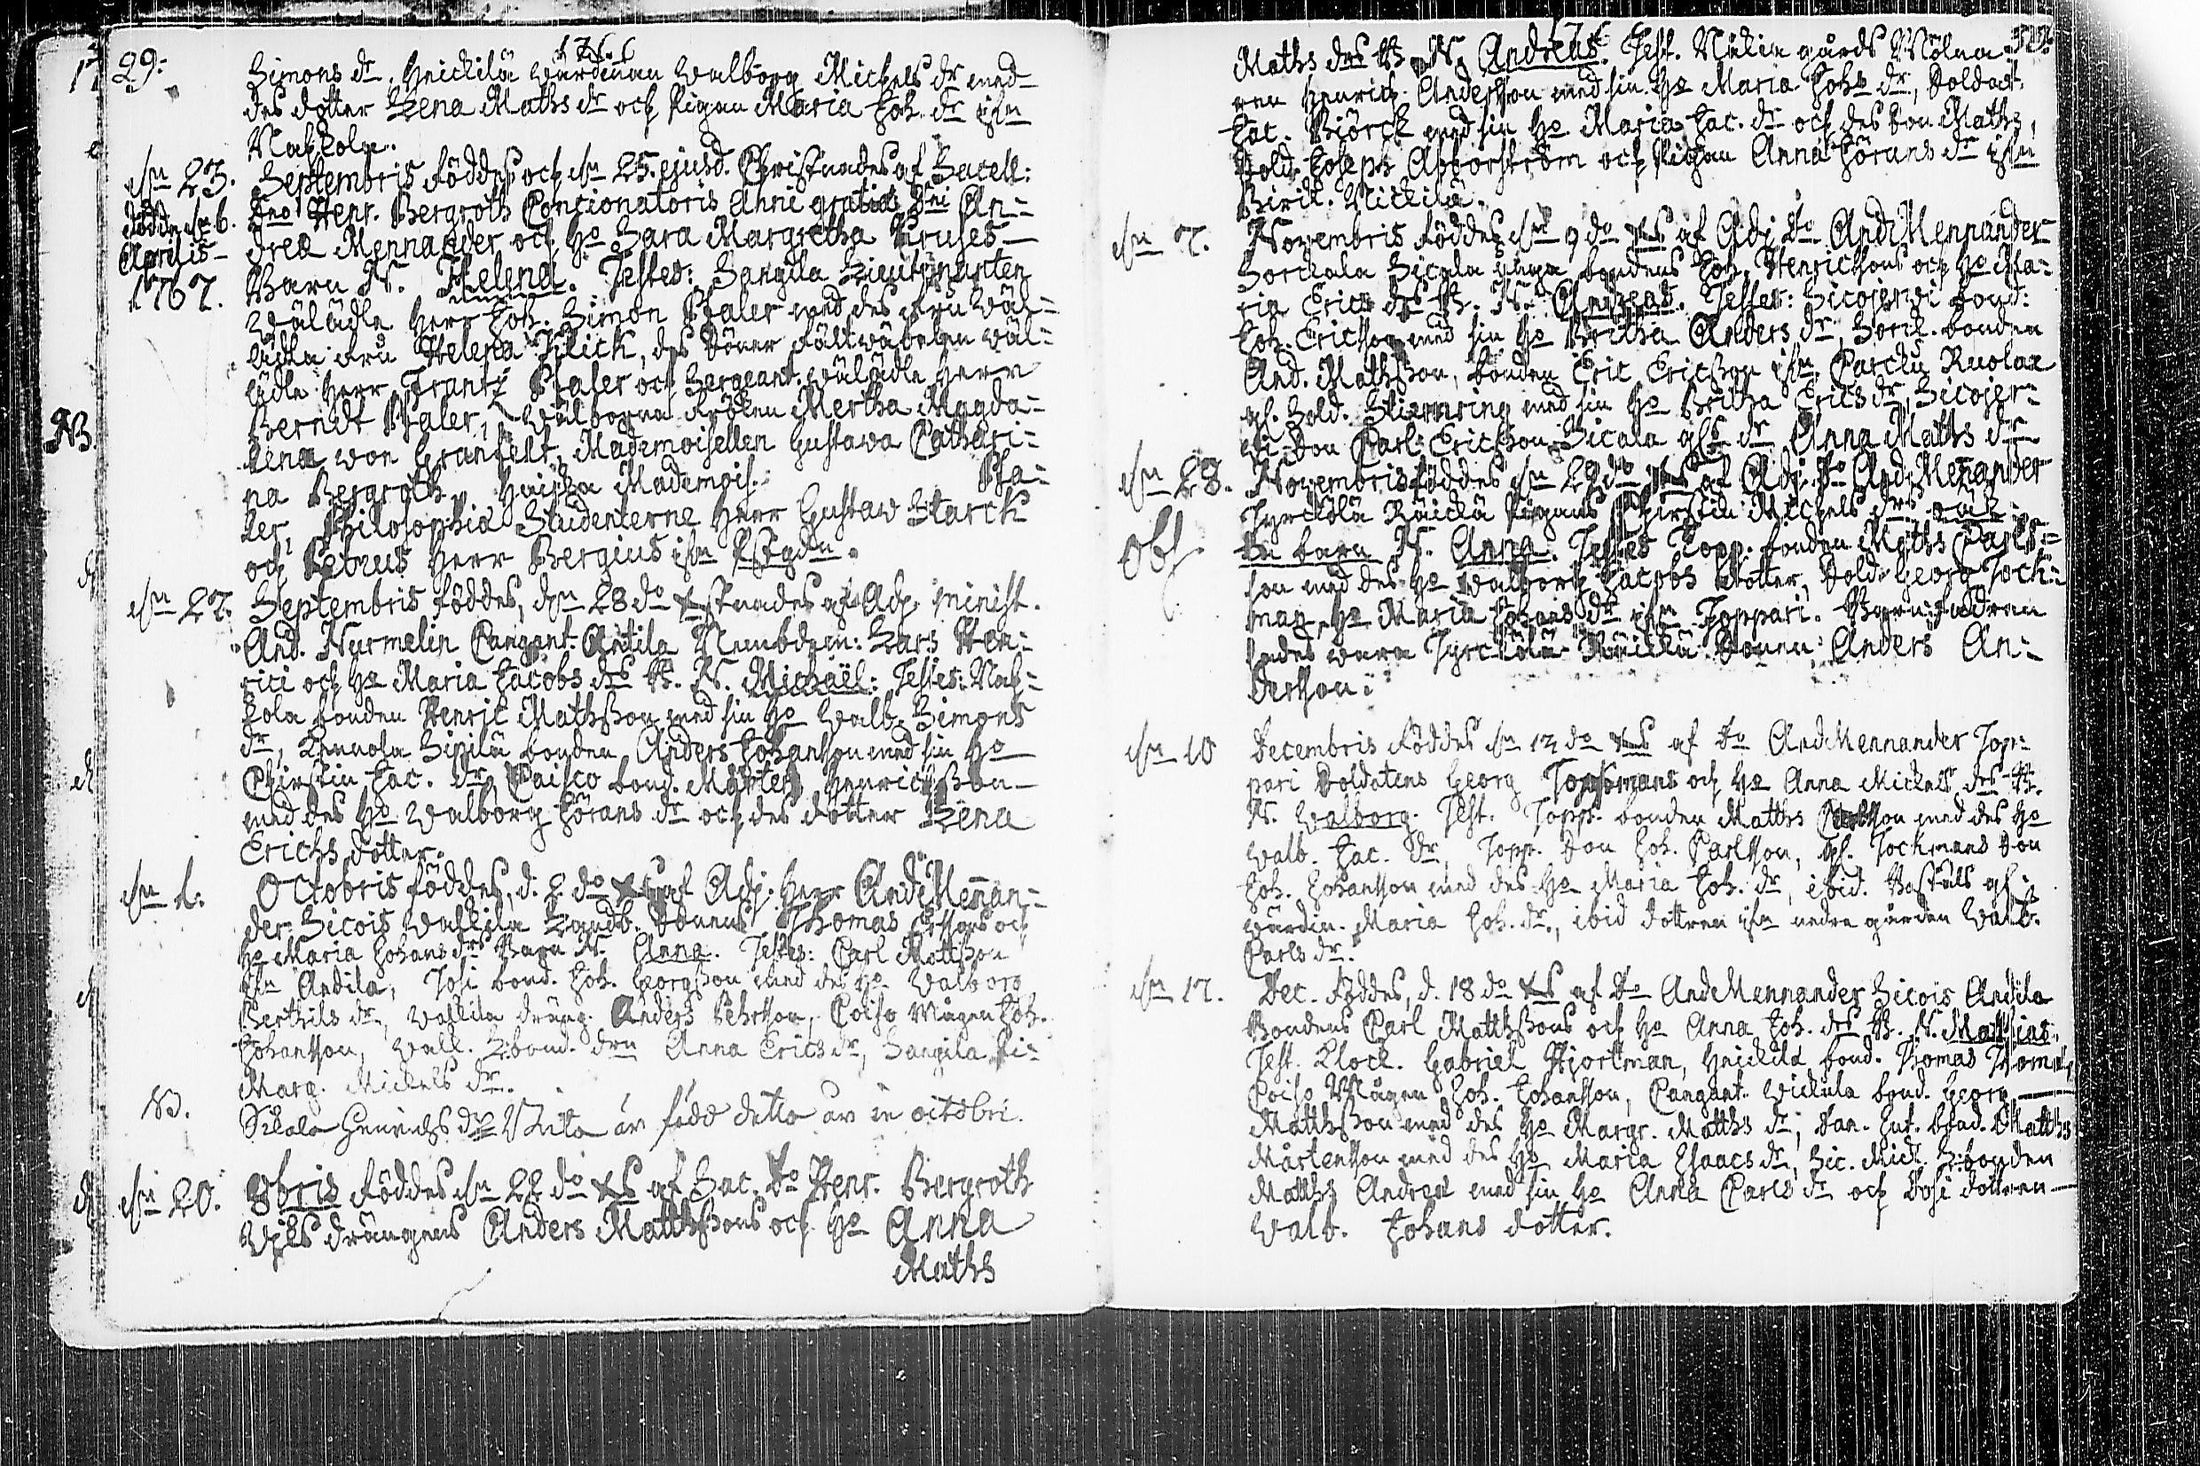 29:
1766
Simons dr, Heickilä wärdinnan Walborg Michels dr med
des dotter Lena Maths dr och Pigan Maria Joh. dr ifrn
Nakkola.
dn 23. Septembris föddes och dn 25. ejusd. Christnades af Sacell:
död dn 6. Dno Henr. Bergroth Concionatoris Anni gratiæ Dni An-
Aprilis dreæ Mennander och Ho Sara Margretha Kruses
1767. Barn N. Helena. Testes: Sangila Lieutenanten
Wälädle Herr Joh. Simon Pfaler med des fru Wäl-
ädla fru Helena Flick, des Söner Fältwäbelen wäl-
ädle Herr Frantz Pfaler och Sergeant. wälädle Herr
Berndt Pfaler, Wälborna Fröken Mertha Magda-
NB. lena von Granfelt, Mademoisellen Gustava Cathari-
na Bergroth, Mademois. Pfa-
ler, Philosophiæ Studenterne Herr Gustav Starck
och Petrus Herr Bergius ifrn
dn 27. Septembris föddes, dn 28 do xstnades af Adj. Minist.
And. Nurmelin Cangant. Antila Nembdem: Lars Hen-
rici och Ho Maria Jacobs drs B. N. Michaël: Testes: Nak-
kola bonden Henric Mathsson med sin Ho Walb. Simons
dr, Lennola Sipilä bonden Anders Johansson med sin Ho
Christin Jac. dr, Caisco bond. Mårten Henrichsson
med des Ho Walborg Jörans dr och des dotter Lena
Erichs dotter.
dn 1. Octobris föddes, d. 2 do xs af Adj. Herr And. Mennan-
der Sicois Wallila Landb. Sonens Thomas Ersons och
Ho Maria Johans drs Barn N. Anna. Testes: Carl Mattsson
ifrn Andila, Tosi bond. Joh. Georgsson med des Ho Walborg
Berthils dr, Wallila dräng. Anders Pehrsson, Coiso Mågen Joh.
Johansson, Wall. Lbond. drn Anna Erics dr, Sangila Pi-
Marg. Mickels dr.
NB. Sikala Henrichs dr Brita är född detta år in octobri.
dn 20. 8bris föddes dn 22 do xs af Sac. Do Henr. Bergroth
drängens Anders Matthssons och Ho Anna
Maths
Maths drs B. N. Andreas. Test. Näkin gårds Mölna-
ren Henrich Andersson med sin Ho Maria Joh. dr, Soldat.
Jac. Biörck med sin Ho Maria Jac. dr och des Son Maths,
Sold. Joseph och Pigan Anna Jörans dr ifrn
Nickilä.
dn 7. Novembris föddes dn 9 do xs af Adj. Do And. Mennander
Sorckala Sicala unga bondens Joh. Henrichsons och Ho Ma-
ria Erics drs B. N. Andreas. Testes: Sicojerwi bond:
Joh. Ericsson med sin Ho Britha Anders dr, Sorck. bonden
And. Mathsson, bonden Eric Ericsson ifrn Parcku Ruolax
gl. Sold. Stiernring med sin Ho Britha Erics dr, Sicojer-
wi Son Carl Ericsson Sicala gls dr Anna Maths dr
dn 28. Novembris föddes dn 29 do xs af Adj. Do And. Mennander
Tyrckölä Räickä Pigans Christin Michels drs oäk-
Obs. ta barn N. Anna. Testes Topp. bonden Maths Carls-
son med des Ho Walborg Jacobs dotter, Sold. Georg Tock-
man, Ho Maria Johans dr ifrn Toppari. Barnafadren
sades vara Tyrckölä Räickä Sonen Anders An-
dersson:
dn 10 Decembris föddes dn 12 do xs af Do And. Mennander Top-
pari Soldatens Georg Tockmans och Ho Anna Mickels drs B.
N. Walborg. Test. Topp. bonden Matths Carlsson med des Ho
Walb. Jac. dr, Topp. Son Joh. Carlsson, gl. Tockmans Son
Joh. Johansson med des Ho Maria Joh. dr, ibid. gl.
wärdin. Maria Joh. dr., ibid dottren ifrn nedre gården Walb.
Carls dr.
dn 17. Dec. föddes, d. 18 do xs af Do And. Mennander Sicois Andila
Bondens Carl Matthssons och Ho Anna Joh. drs B. N. Matthias.
Test. Klock. Gabriel Hjortman, Heickilä bond. Thomas
Coiso Mågen Joh. Johansson, Cangant. Wickula bond. Georg
Matthsson med des Ho Margr. Matths dr, bond. Matths
Mårtensson med des Ho Maria Isaacs dr, Sic. Mick. Lbonden
Matths Andreæ med sin Ho Anna Carls dr och Tosi dottren
Walb. Johans dotter.